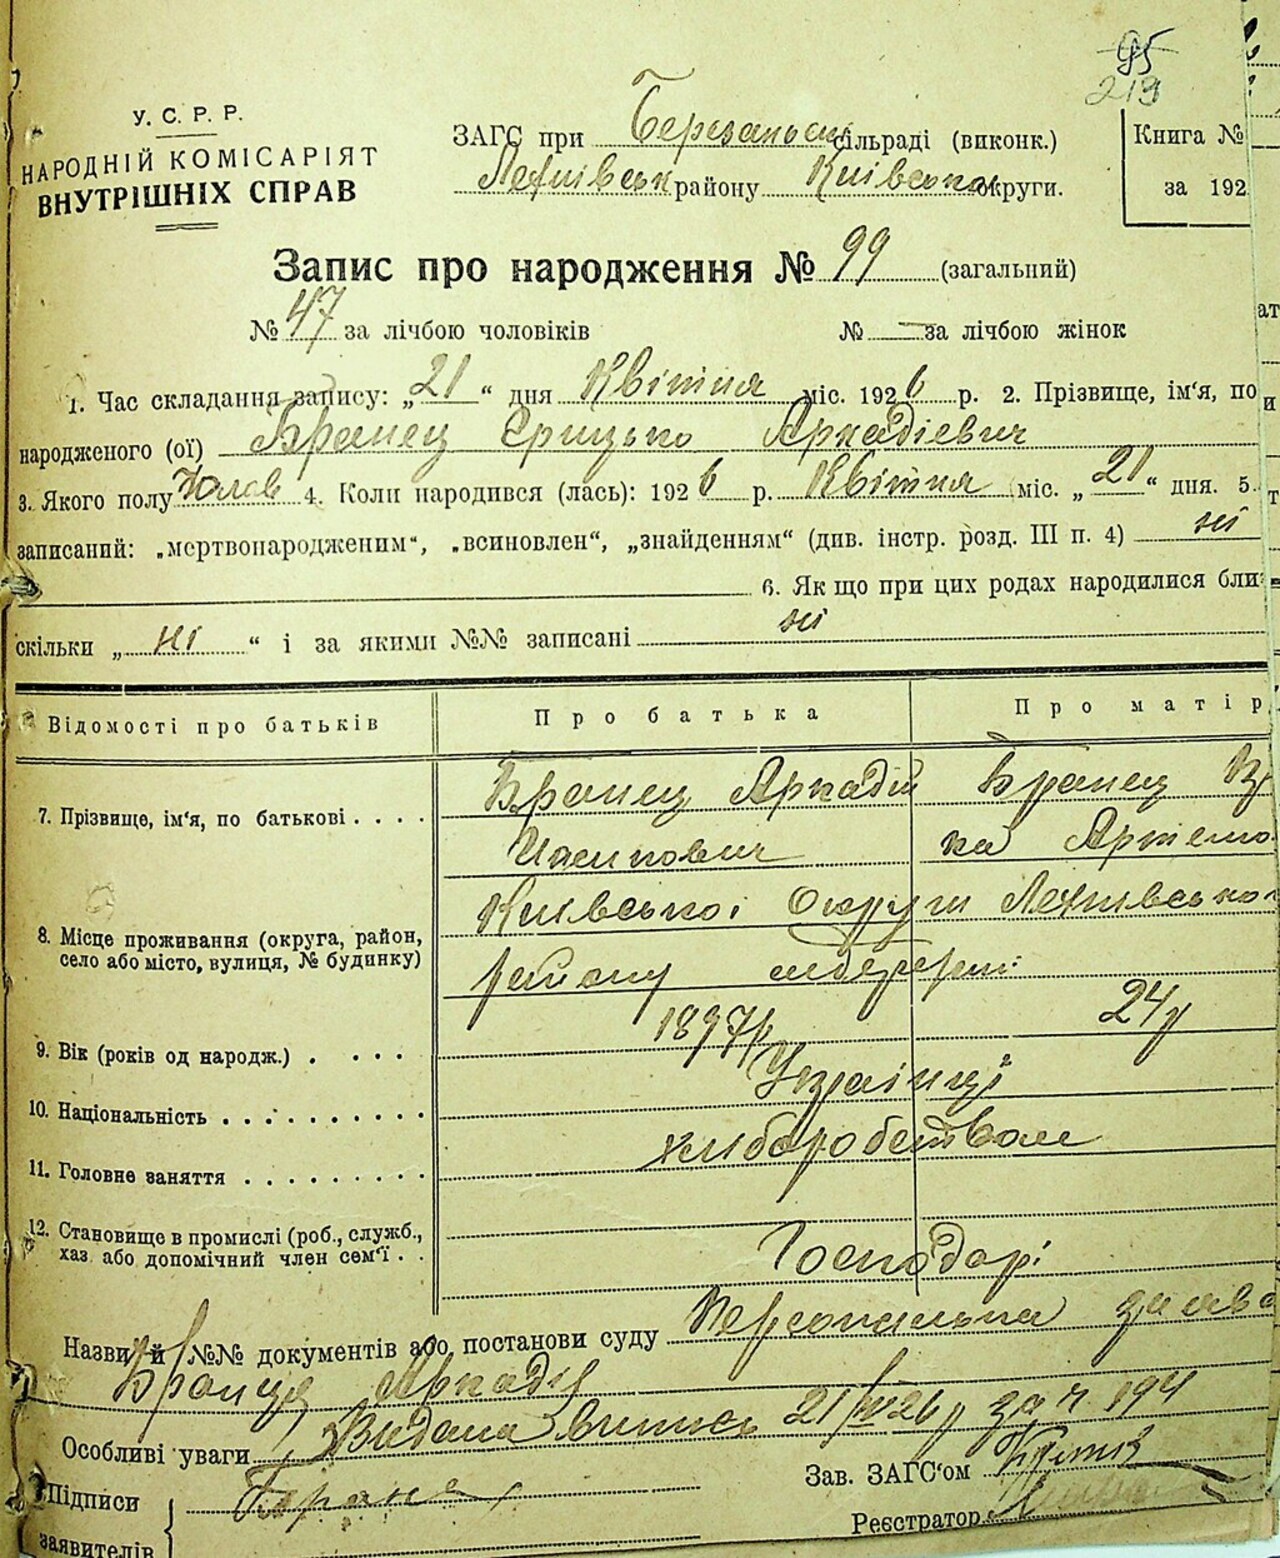 95
219
У. С. Р. Р.
НАРОДНІЙ КОМІСАРІЯТ
ВНУТРІШНІХ СПРАВ
ЗАГС при сільраді (виконк.)
району Київської округи.
Книга №
за 192
Запис про народження № 99 (загальний)
№ 47 за лічбою чоловіків № — за лічбою жінок
1. Час складання запису: „ 21 “ дня Квітня міс. 192 6 р. 2. Прізвище, ім'я, по
народженого (ої) Бранец Грицько Аркадієвич
3. Якого полу Чолов 4. Коли народився (лась): 192 6 р. Квітня міс. „ 21 “ дня. 5.
записаний: „мертвонародженим“, „всиновлен“, „знайденням“ (див. інстр. розд. III п. 4) ні
6. Як що при цих родах народилися бли
скільки „ ні “ і за якими №№ записані ні
Відомості про батьків Про батька Про матір
7. Прізвище, ім‘я, по батькові . . . . Бранец Аркадій Бранец
ка Артемо
8. Місце проживання (округа, район, село або місто, вулиця, № будинку) Київської Округи
району
9. Вік (років од народж.) . . . . 1897р 24р
10. Національність . . . . . . . . . . Українці
11. Головне заняття . . . . . . . . . хліборобством
12. Становище в промислі (роб., служб., хаз або допомічний член сем‘ї . . Господарі
Назви й №№ документів або постанови суду Персональна заява
Бранця Аркадія
Особливі уваги Видана випись 21/IV 26 р за № 194
Зав. ЗАГС‘ом
Підписи
заявителів
Реєстратор